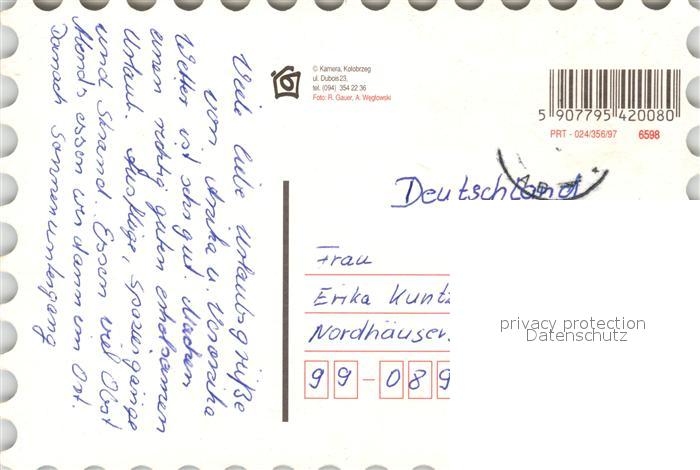 © Kamera, Kołobrzeg
ul. Dubois 23,
tel. (094) 354 22 36
Foto: R. Gauer, A. Węglowski
5 907795 420080
PRT - 024/356/97 6598
Deutschland
Frau
Erika Kuntz
Nordhäuser
99-089
privacy protection
Datenschutz
Viele liebe Urlaubsgrüße
von u. Veronika
Wetter ist sehr gut. Machen
einen richtig guten erholsamen
Urlaub. Ausflüge, Spaziergänge
und Strand. Essen viel Obst
Abends essen wir dann im Ort.
Danach Sonnenuntergang